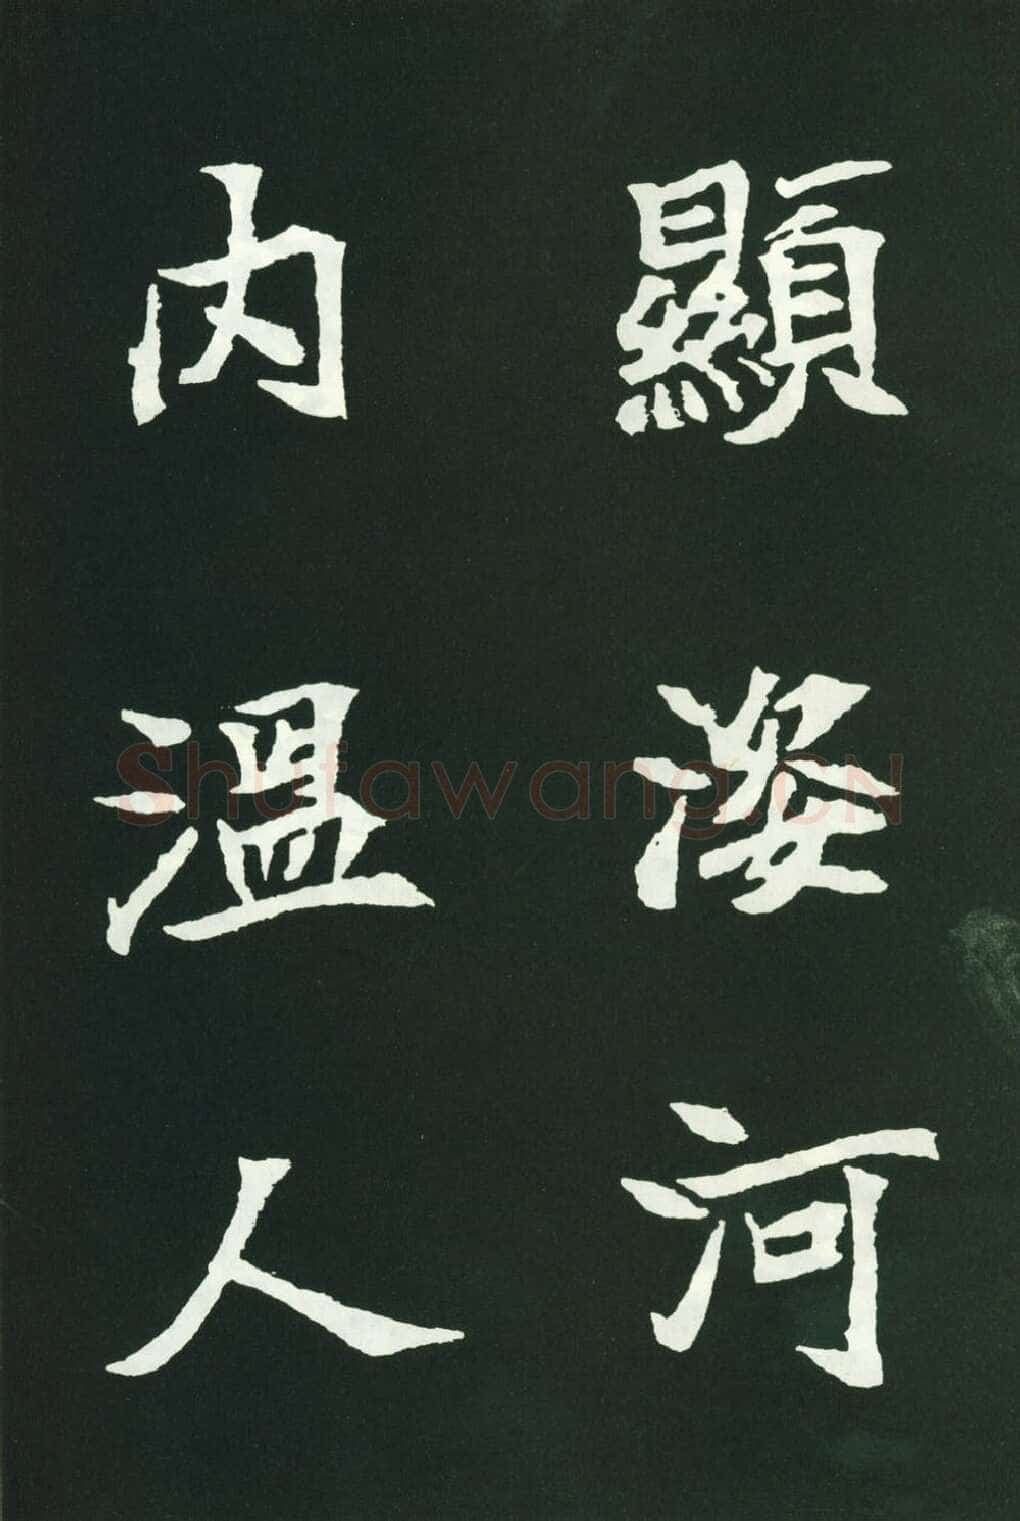 顯姿河
内溫人
Shufawang.CN